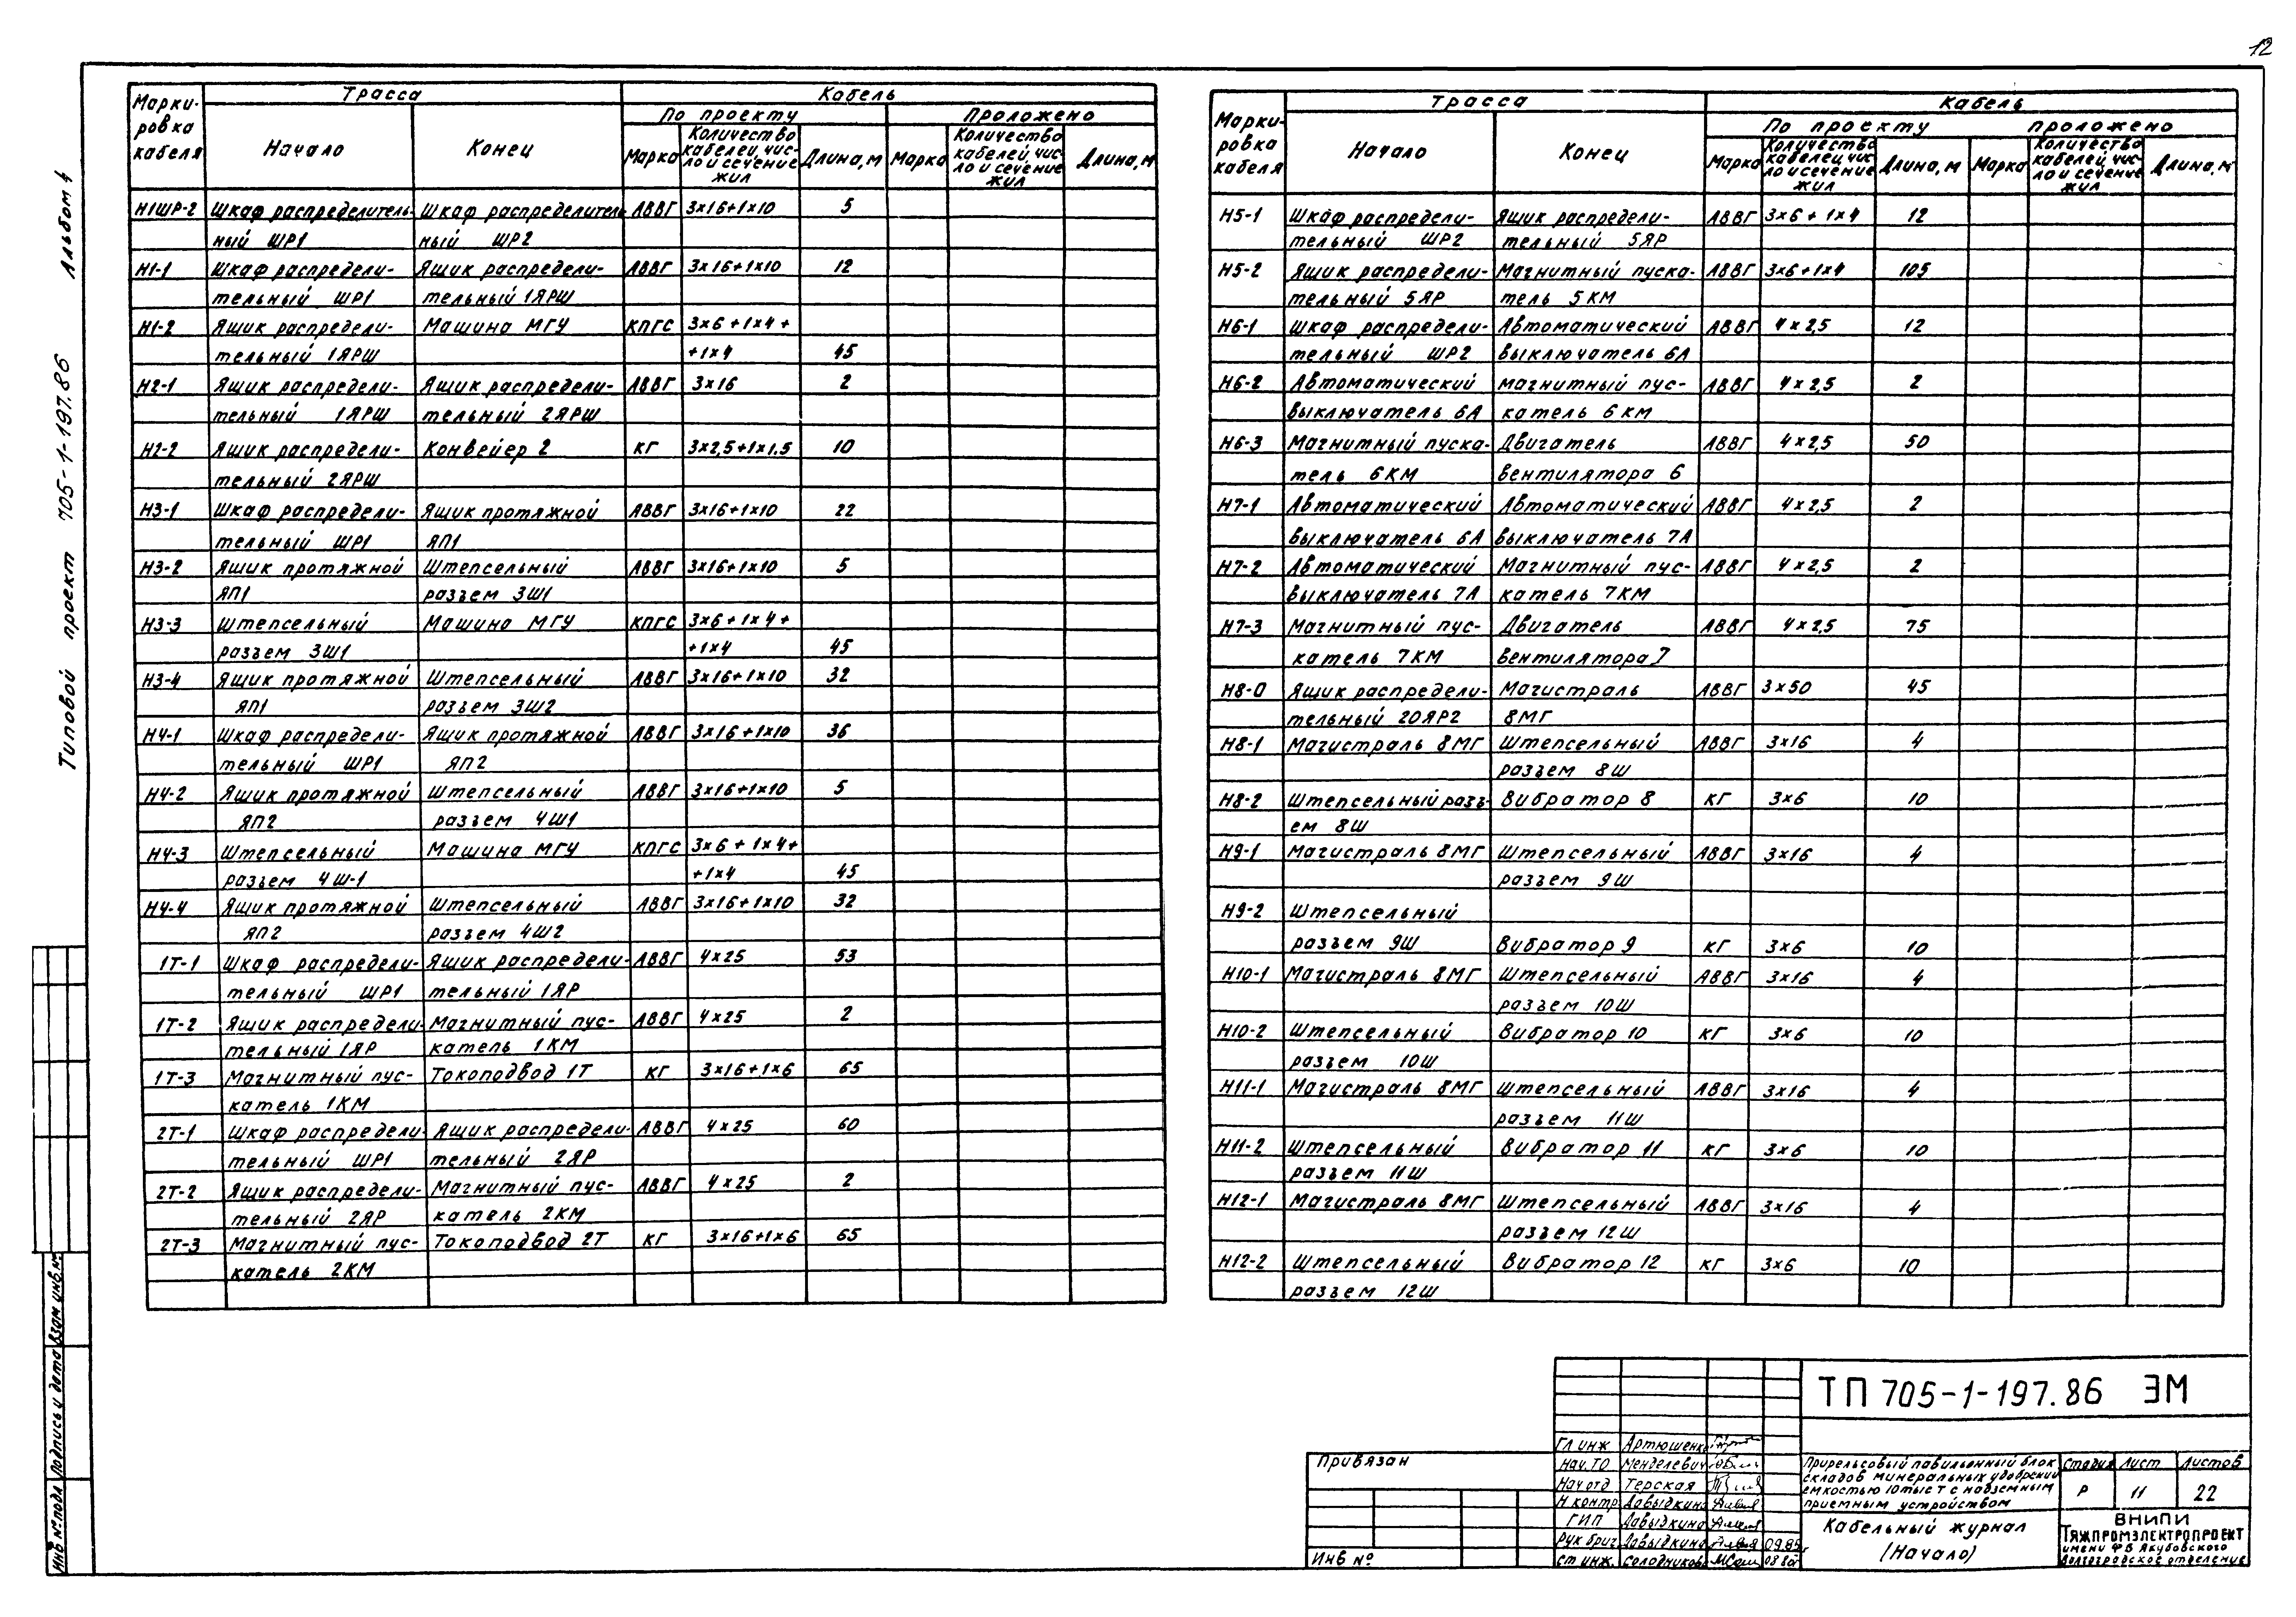 12
Альбом 4
Типовой проект 705-1-197.86
Марки-
ровка
кабеля
Трасса
Кабель
Начало
Конец
По проекту
Проложено
Марка
Количество
кабелей, чис-
ло и сечение
жил
Длина, м
Марка
Количество
кабелей, чис-
ло и сечение
жил
Длина, м
Н1ШР-2 Шкаф распределитель- Шкаф распределитель АВВГ 3х16+1х10 5
ный ШР1 ный ШР2
Н1-1 Шкаф распредели- Ящик распредели- АВВГ 3х16+1х10 12
тельный ШР1 тельный 1ЯРШ
Н1-2 Ящик распредели- Машина МГУ КПГС 3х6+1х4+
тельный 1ЯРШ +1х4 45
Н2-1 Ящик распредели- Ящик распредели- АВВГ 3х16 2
тельный 1ЯРШ тельный 2ЯРШ
Н2-2 Ящик распредели- Конвейер 2 КГ 3х2,5+1х1,5 10
тельный 2ЯРШ
Н3-1 Шкаф распредели- Ящик протяжной АВВГ 3х16+1х10 22
тельный ШР1 ЯП1
Н3-2 Ящик протяжной Штепсельный АВВГ 3х16+1х10 5
ЯП1 разъем 3Ш1
Н3-3 Штепсельный Машина МГУ КПГС 3х6+1х4+
разъем 3Ш1 +1х4 45
Н3-4 Ящик протяжной Штепсельный АВВГ 3х16+1х10 32
ЯП1 разъем 3Ш2
Н4-1 Шкаф распредели- Ящик протяжной АВВГ 3х16+1х10 36
тельный ШР1 ЯП2
Н4-2 Ящик протяжной Штепсельный АВВГ 3х16+1х10 5
ЯП2 разъем 4Ш1
Н4-3 Штепсельный Машина МГУ КПГС 3х6+1х4+
разъем 4Ш-1 +1х4 45
Н4-4 Ящик протяжной Штепсельный АВВГ 3х16+1х10 32
ЯП2 разъем 4Ш2
1Т-1 Шкаф распредели- Ящик распредели- АВВГ 4х25 53
тельный ШР1 тельный 1ЯР
1Т-2 Ящик распредели- Магнитный пус- АВВГ 4х25 2
тельный 1ЯР катель 1КМ
1Т-3 Магнитный пус- Токоподвод 1Т КГ 3х16+1х6 65
катель 1КМ
2Т-1 Шкаф распредели- Ящик распредели- АВВГ 4х25 60
тельный ШР1 тельный 2ЯР
2Т-2 Ящик распредели- Магнитный пус- АВВГ 4х25 2
тельный 2ЯР катель 2КМ
2Т-3 Магнитный пус- Токоподвод 2Т КГ 3х16+1х6 65
катель 2КМ
Марки-
ровка
кабеля
Трасса
Кабель
Начало
Конец
По проекту
проложено
Марка
Количество
кабелей, чис-
ло и сечение
жил
Длина, м
Марка
Количество
кабелей, чис-
ло и сечение
жил
Длина, м
Н5-1 Шкаф распредели- Ящик распредели- АВВГ 3х6+1х4 12
тельный ШР2 тельный 5ЯР
Н5-2 Ящик распредели- Магнитный пуска- АВВГ 3х6+1х4 105
тельный 5ЯР тель 5КМ
Н6-1 Шкаф распредели- Автоматический АВВГ 4х2,5 12
тельный ШР2 выключатель 6А
Н6-2 Автоматический магнитный пус- АВВГ 4х2,5 2
выключатель 6А катель 6КМ
Н6-3 Магнитный пуска- Двигатель АВВГ 4х2,5 50
тель 6КМ вентилятора 6
Н7-1 Автоматический Автоматический АВВГ 4х2,5 2
выключатель 6А выключатель 7А
Н7-2 Автоматический Магнитный пус- АВВГ 4х2,5 2
выключатель 7А катель 7КМ
Н7-3 Магнитный пус- Двигатель АВВГ 4х2,5 75
катель 7КМ вентилятора 7
Н8-0 Ящик распредели- Магистраль АВВГ 3х50 45
тельный 20ЯР2 8МГ
Н8-1 Магистраль 8МГ Штепсельный АВВГ 3х16 4
разъем 8Ш
Н8-2 Штепсельный разъ- Вибратор 8 КГ 3х6 10
ем 8Ш
Н9-1 Магистраль 8МГ Штепсельный АВВГ 3х16 4
разъем 9Ш
Н9-2 Штепсельный
разъем 9Ш Вибратор 9 КГ 3х6 10
Н10-1 Магистраль 8МГ Штепсельный АВВГ 3х16 4
разъем 10Ш
Н10-2 Штепсельный Вибратор 10 КГ 3х6 10
разъем 10Ш
Н11-1 Магистраль 8МГ Штепсельный АВВГ 3х16 4
разъем 11Ш
Н11-2 Штепсельный Вибратор 11 КГ 3х6 10
разъем 11Ш
Н12-1 Магистраль 8МГ Штепсельный АВВГ 3х16 4
разъем 12Ш
Н12-2 Штепсельный Вибратор 12 КГ 3х6 10
разъем 12Ш
Инв № подл
Подпись и дата
Взам инв. №
Привязан
Инв №
ТП 705-1-197.86 ЭМ
Гл инж Артюшенко
Нач. ТО Менделевич
Нач отд Терская
Н контр Давыдкина
ГИП Давыдкина
Рук бриг Давыдкина 09.85г
Ст инж. Солодникова 08 85г
Прирельсовый павильонный блок
складов минеральных удобрений
емкостью 10тыс т с надземным
приемным устройством
Стадия Лист Листов
Р 11 22
Кабельный журнал
(Начало)
ВНИПИ
Тяжпромэлектропроект
имени Ф Б Якубовского
Волгоградское отделение